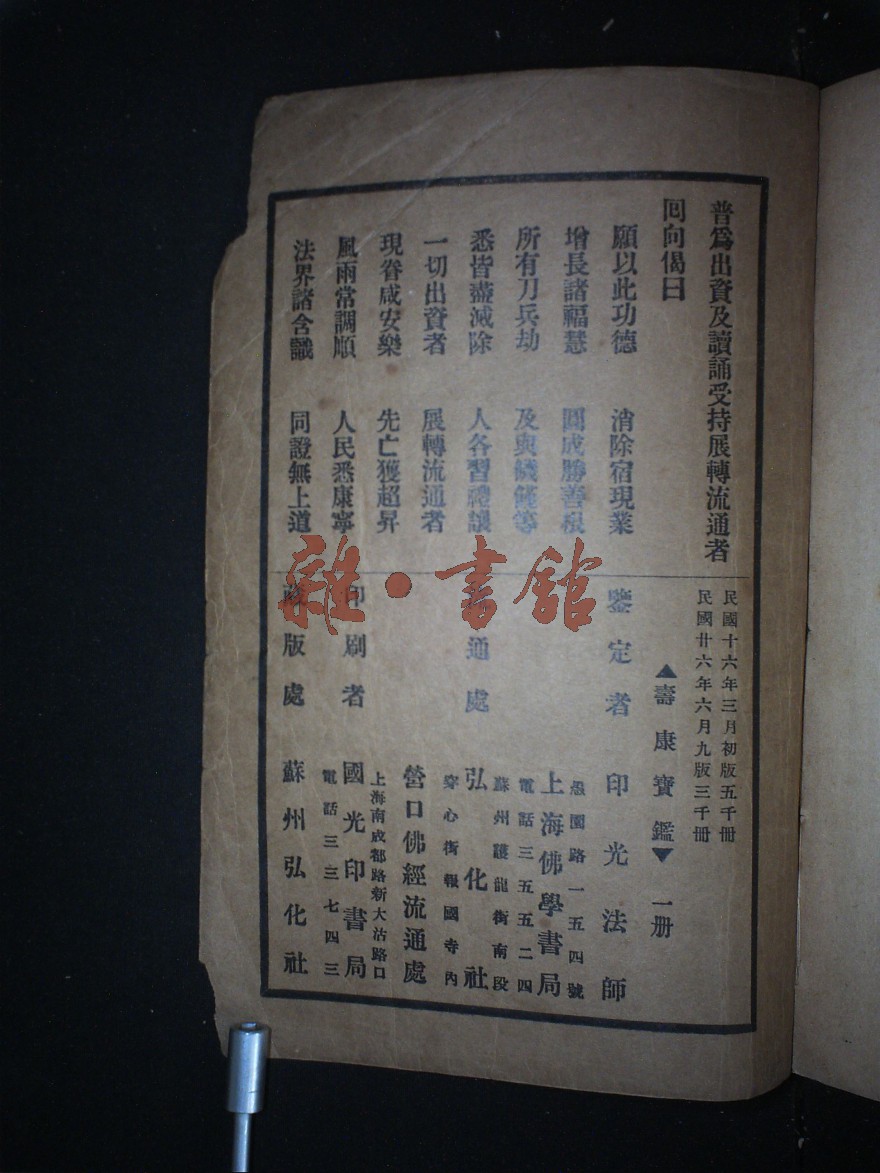 普爲出資及讀誦受持展轉流通者
回向偈曰
願以此功德 消除宿現業
增長諸福慧 圓成勝善根
所有刀兵劫 及與饑饉等
悉皆盡滅除 人各習禮讓
一切出資者 展轉流通者
現眷咸安樂 先亡獲超昇
風雨常調順 人民悉康寧
法界諸含識 同證無上道
民國十六年三月初版五千冊
民國廿六年六月九版三千冊
▲壽康寶鑑▼ 一册
鑒定者 印光法師
愚園路一五四號
上海佛學書局
電話三五五二四
通處
蘇州護龍街南段
弘化社
穿心街報國寺內
營口佛經流通處
上海南成都路新大沽路口
印刷者 國光印書局
電話三三七四三
版處 蘇州弘化社
雜·書館